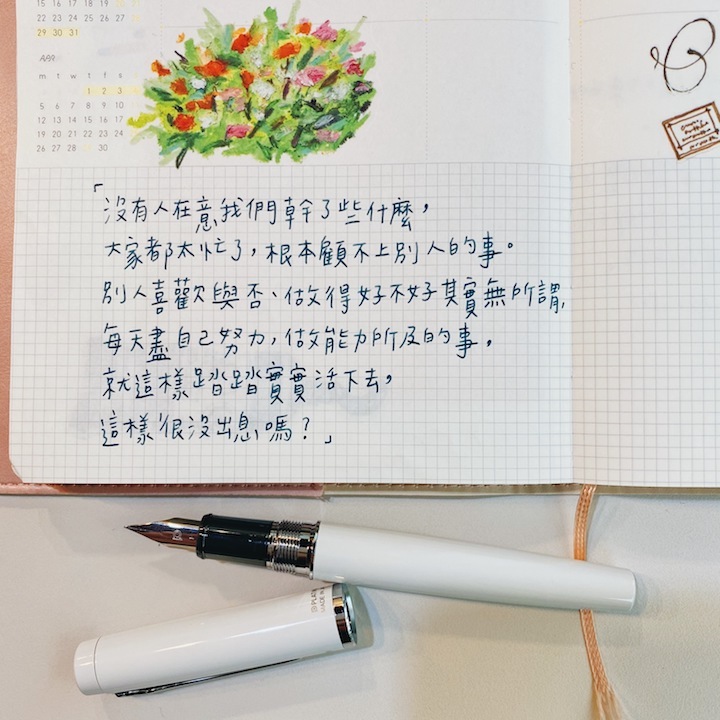 15 16 17 18 19 20 21
22 23 24 25 26 27 28
29 30 31
APR
m t w t f s
1 2 3
5 6 7 8 9 10
12 13 14 15 16 17
19 20 21 22 23 24
26 27 28 29 30
「沒有人在意我們幹了些什麼，
大家都太忙了，根本顧不上別人的事。
別人喜歡與否、做得好不好其實無所謂，
每天盡自己努力，做能力所及的事，
就這樣踏踏實實活下去，
這樣很沒出息嗎？」
MADE IN